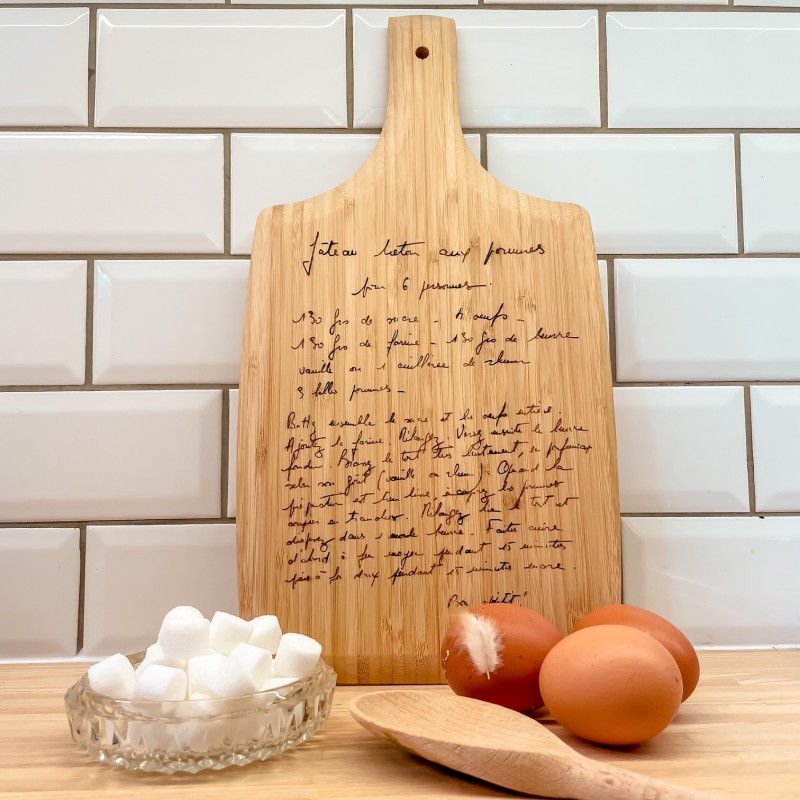 Gâteau breton aux pommes
pour 6 personnes.
130 grs de sucre - 4 oeufs -
130 grs de farine - 130 grs de beurre
vanille ou 1 cuillerée de rhum
3 belles pommes -
Battez ensemble le sucre et les oeufs entiers.
Ajoutez la farine. Mélangez. Versez ensuite le beurre
fondu. Brassez le tout très lentement, en parfumant
selon son goût (vanille ou rhum). Quand la
préparation est bien lisse, les pommes
coupées en tranches. Mélangez bien le tout et
disposez dans 1 moule beurré. Faites cuire
d'abord à feu moyen pendant 15 minutes
puis à feu doux pendant 15 minutes encore.
Bon appétit!